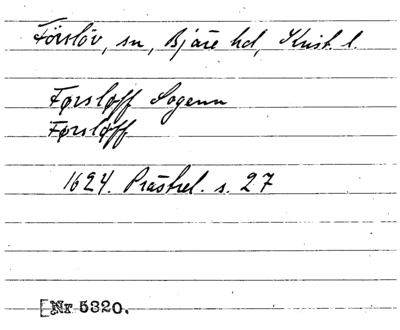 Förslöv, sn, Bjäre hd, Krist. l.
Førsløff Sogenn
Førsløff
1624. Prästrel. s. 27
[Nr 5320.